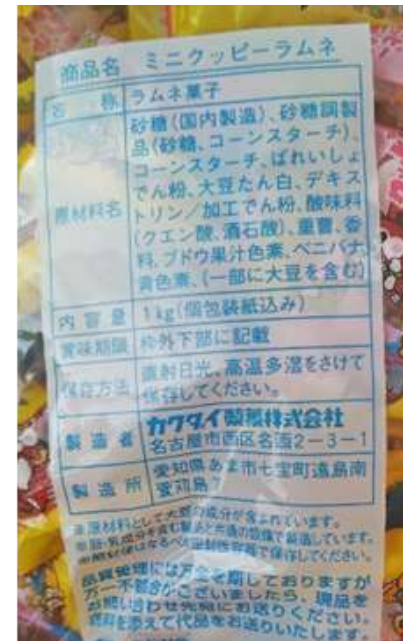 商品名 ミニクッピーラムネ
名称 ラムネ菓子
原材料名 砂糖(国内製造)、砂糖調製
品(砂糖、コーンスターチ)、
コーンスターチ、ばれいしょ
でん粉、大豆たん白、デキス
トリン/加工でん粉、酸味料
(クエン酸、酒石酸)、重曹、香
料、ブドウ果汁色素、ベニバナ
黄色素、(一部に大豆を含む)
内容量 1kg(個包装紙込み)
賞味期限 枠外下部に記載
保存方法 直射日光、高温多湿をさけて
保存してください。
製造者 カクダイ製菓株式会社
名古屋市西区名西2-3-1
製造所 愛知県あま市七宝町遠島南
島7
主原材料として大豆の成分が含まれています。
品質管理には万全を期しておりますが
万一不都合がございましたら、現品を
お問い合わせ先宛にお送りください。
を添えて代品をお送りいたします。